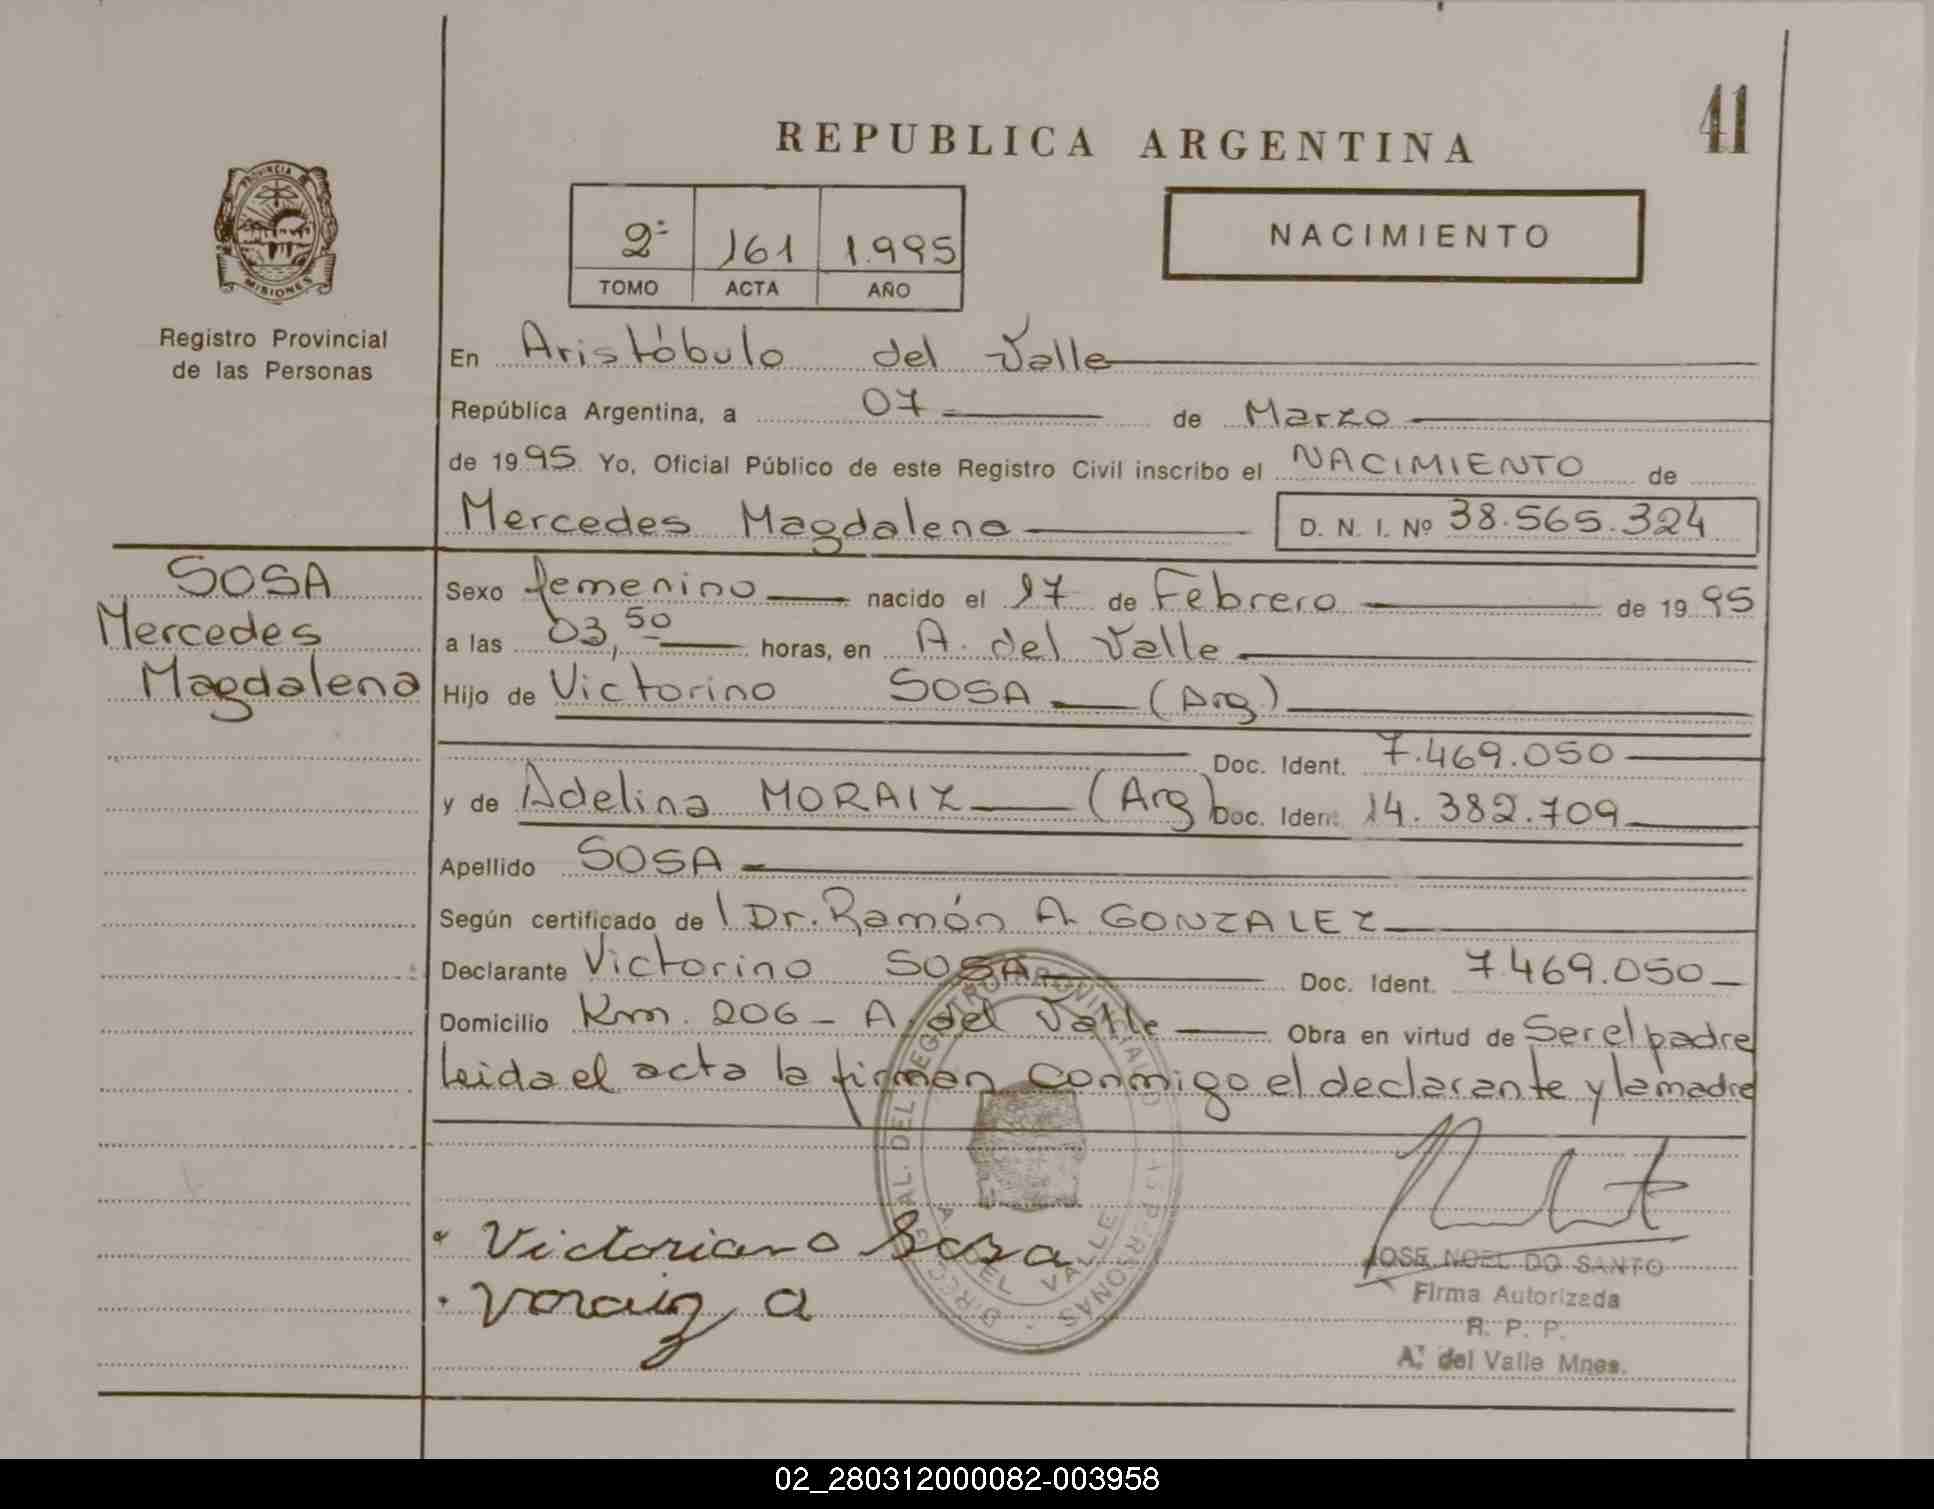 41
REPUBLICA ARGENTINA
PROVINCIA DE MISIONES
Registro Provincial
de las Personas
2º 161 1.995
TOMO ACTA AÑO
NACIMIENTO
En Aristóbulo del Valle
República Argentina, a 07 de Marzo
de 1995 Yo, Oficial Público de este Registro Civil inscribo el NACIMIENTO de
Mercedes Magdalena D. N. I. Nº 38.565.324
SOSA
Mercedes
Magdalena
Sexo femenino nacido el 17 de Febrero de 1995
a las 03,50 horas, en A. del Valle
Hijo de Victorino SOSA (Arg)
Doc. Ident. 7.469.050
y de Adelina MORAIZ (Arg) Doc. Ident 14.382.709
Apellido SOSA
Según certificado de l Dr. Ramón A. GONZALEZ
Declarante Victorino SOSA Doc. Ident. 7.469.050
Domicilio Km. 206 - A. del Valle Obra en virtud de Ser el padre
leida el acta la firman conmigo el declarante y la madre
DIRECC. GRAL. DEL REGISTRO PROVINCIAL DE LAS PERSONAS
A. DEL VALLE
Victoriano Sosa
JOSE NOEL DO SANTO
Firma Autorizada
R. P. P.
A. del Valle Mnes.
02_280312000082-003958